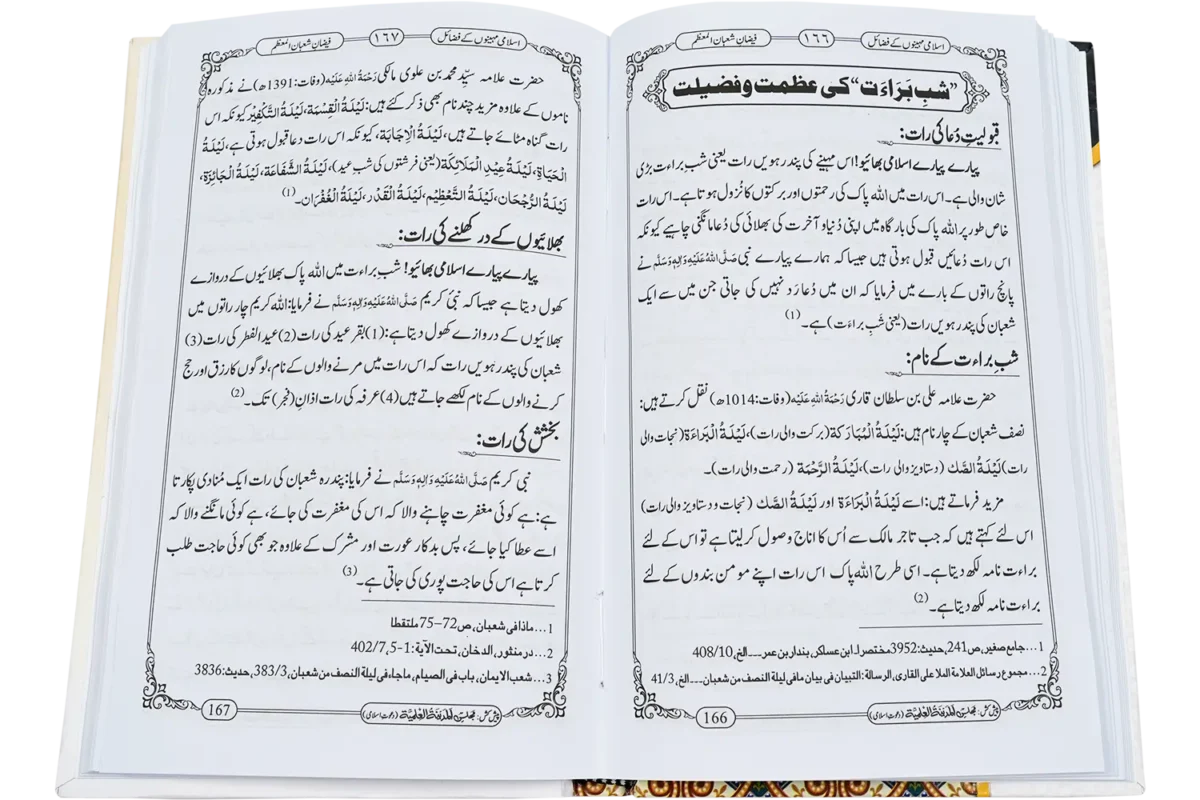 اسلامی مہینوں کے فضائل ۱۶۶ فیضان شعبان المعظم
”شبِ بَرَاءَت“ کی عظمت و فضیلت
قبولیتِ دُعا کی رات:
پیارے پیارے اسلامی بھائیو! اس مہینے کی پندرہویں رات یعنی شبِ براءت بڑی
شان والی ہے۔ اس رات میں اللہ پاک کی رحمتوں اور برکتوں کا نُزول ہوتا ہے۔ اس رات
خاص طور پر اللہ پاک کی بارگاہ میں اپنی دُنیا و آخرت کی بھلائی کی دُعا مانگنی چاہیے کیونکہ
اس رات دُعائیں قبول ہوتی ہیں جیسا کہ ہمارے پیارے نبی صَلَّی اللہُ عَلَیْہِ وَاٰلِہٖ وَسَلَّم نے
پانچ راتوں کے بارے میں فرمایا کہ ان میں دُعا رَد نہیں کی جاتی جن میں سے ایک
شعبان کی پندرہویں رات (یعنی شبِ براءت) ہے۔ (1)
شبِ براءت کے نام:
حضرت علامہ علی بن سلطان قاری رَحْمَۃُ اللہِ عَلَیْہ (وفات:1014ھ) نقل کرتے ہیں:
نصف شعبان کے چار نام ہیں: لَیْلَۃُ الْمُبَارَکَۃ (برکت والی رات)، لَیْلَۃُ الْبَرَاءَۃ (نجات والی
رات) لَیْلَۃُ الصَّک (دستاویز والی رات)، لَیْلَۃُ الرَّحْمَۃ (رحمت والی رات)۔
مزید فرماتے ہیں: اسے لَیْلَۃُ الْبَرَاءَۃ اور لَیْلَۃُ الصَّک (نجات و دستاویز والی رات)
اس لئے کہتے ہیں کہ جب تاجر مالک سے اُس کا اناج وصول کرلیتا ہے تو اس کے لئے
براءت نامہ لکھ دیتا ہے۔ اسی طرح اللہ پاک اس رات اپنے مومن بندوں کے لئے
براءت نامہ لکھ دیتا ہے۔ (2)
1 ...جامع صغیر، ص241، حدیث:3952مختصرا۔ ابن عساکر، بندار بن عمر۔۔۔الخ، 408/10
2 ...مجموع رسائل العلامۃ الملا علی القاری، الرسالۃ: التبیان فی بیان مافی لیلۃ النصف من شعبان۔۔۔الخ، 41/3
166 پیش کش: مجلس المدینۃ العلمیۃ (دعوت اسلامی)
اسلامی مہینوں کے فضائل ۱۶۷ فیضان شعبان المعظم
حضرت علامہ سیِّد محمد بن علوی مالکی رَحْمَۃُ اللہِ عَلَیْہ (وفات:1391ھ) نے مذکورہ
ناموں کے علاوہ مزید چند نام بھی ذکر کئے ہیں: لَیْلَۃُ الْقِسْمَۃ، لَیْلَۃُ التَّکْفِیْر کیونکہ اس
رات گناہ مٹائے جاتے ہیں، لَیْلَۃُ الْاِجَابَۃ، کیونکہ اس رات دعا قبول ہوتی ہے، لَیْلَۃُ
الْحَیَاۃ، لَیْلَۃُ عِیْدِ الْمَلَائِکَۃ (یعنی فرشتوں کی شبِ عید)، لَیْلَۃُ الشَّفَاعَۃ، لَیْلَۃُ الْجَائِزَۃ،
لَیْلَۃُ الرُّجْحَان، لَیْلَۃُ التَّعْظِیْم، لَیْلَۃُ الْقَدْر، لَیْلَۃُ الْغُفْرَان۔ (1)
بھلائیوں کے در کھلنے کی رات:
پیارے پیارے اسلامی بھائیو! شبِ براءت میں اللہ پاک بھلائیوں کے دروازے
کھول دیتا ہے جیسا کہ نبی کریم صَلَّی اللہُ عَلَیْہِ وَاٰلِہٖ وَسَلَّم نے فرمایا: اللہ کریم چار راتوں میں
بھلائیوں کے دروازے کھول دیتا ہے: (1) بقر عید کی رات (2) عید الفطر کی رات (3)
شعبان کی پندرہویں رات کہ اس رات میں مرنے والوں کے نام، لوگوں کا رزق اور حج
کرنے والوں کے نام لکھے جاتے ہیں (4) عرفہ کی رات اذانِ (فجر) تک۔ (2)
بخشش کی رات:
نبی کریم صَلَّی اللہُ عَلَیْہِ وَاٰلِہٖ وَسَلَّم نے فرمایا: پندرہ شعبان کی رات ایک مُنادی پکارتا
ہے: ہے کوئی مغفرت چاہنے والا کہ اس کی مغفرت کی جائے، ہے کوئی مانگنے والا کہ
اسے عطا کیا جائے، پس بدکار عورت اور مشرک کے علاوہ جو بھی کوئی حاجت طلب
کرتا ہے اس کی حاجت پوری کی جاتی ہے۔ (3)
1 ...ماذا فی شعبان، ص72–75 ملتقطا
2 ...در منثور، الدخان، تحت الآیۃ:1-5، 402/7
3 ...شعب الایمان، باب فی الصیام، ماجاء فی لیلۃ النصف من شعبان، 383/3، حدیث:3836
پیش کش: مجلس المدینۃ العلمیۃ (دعوت اسلامی) 167